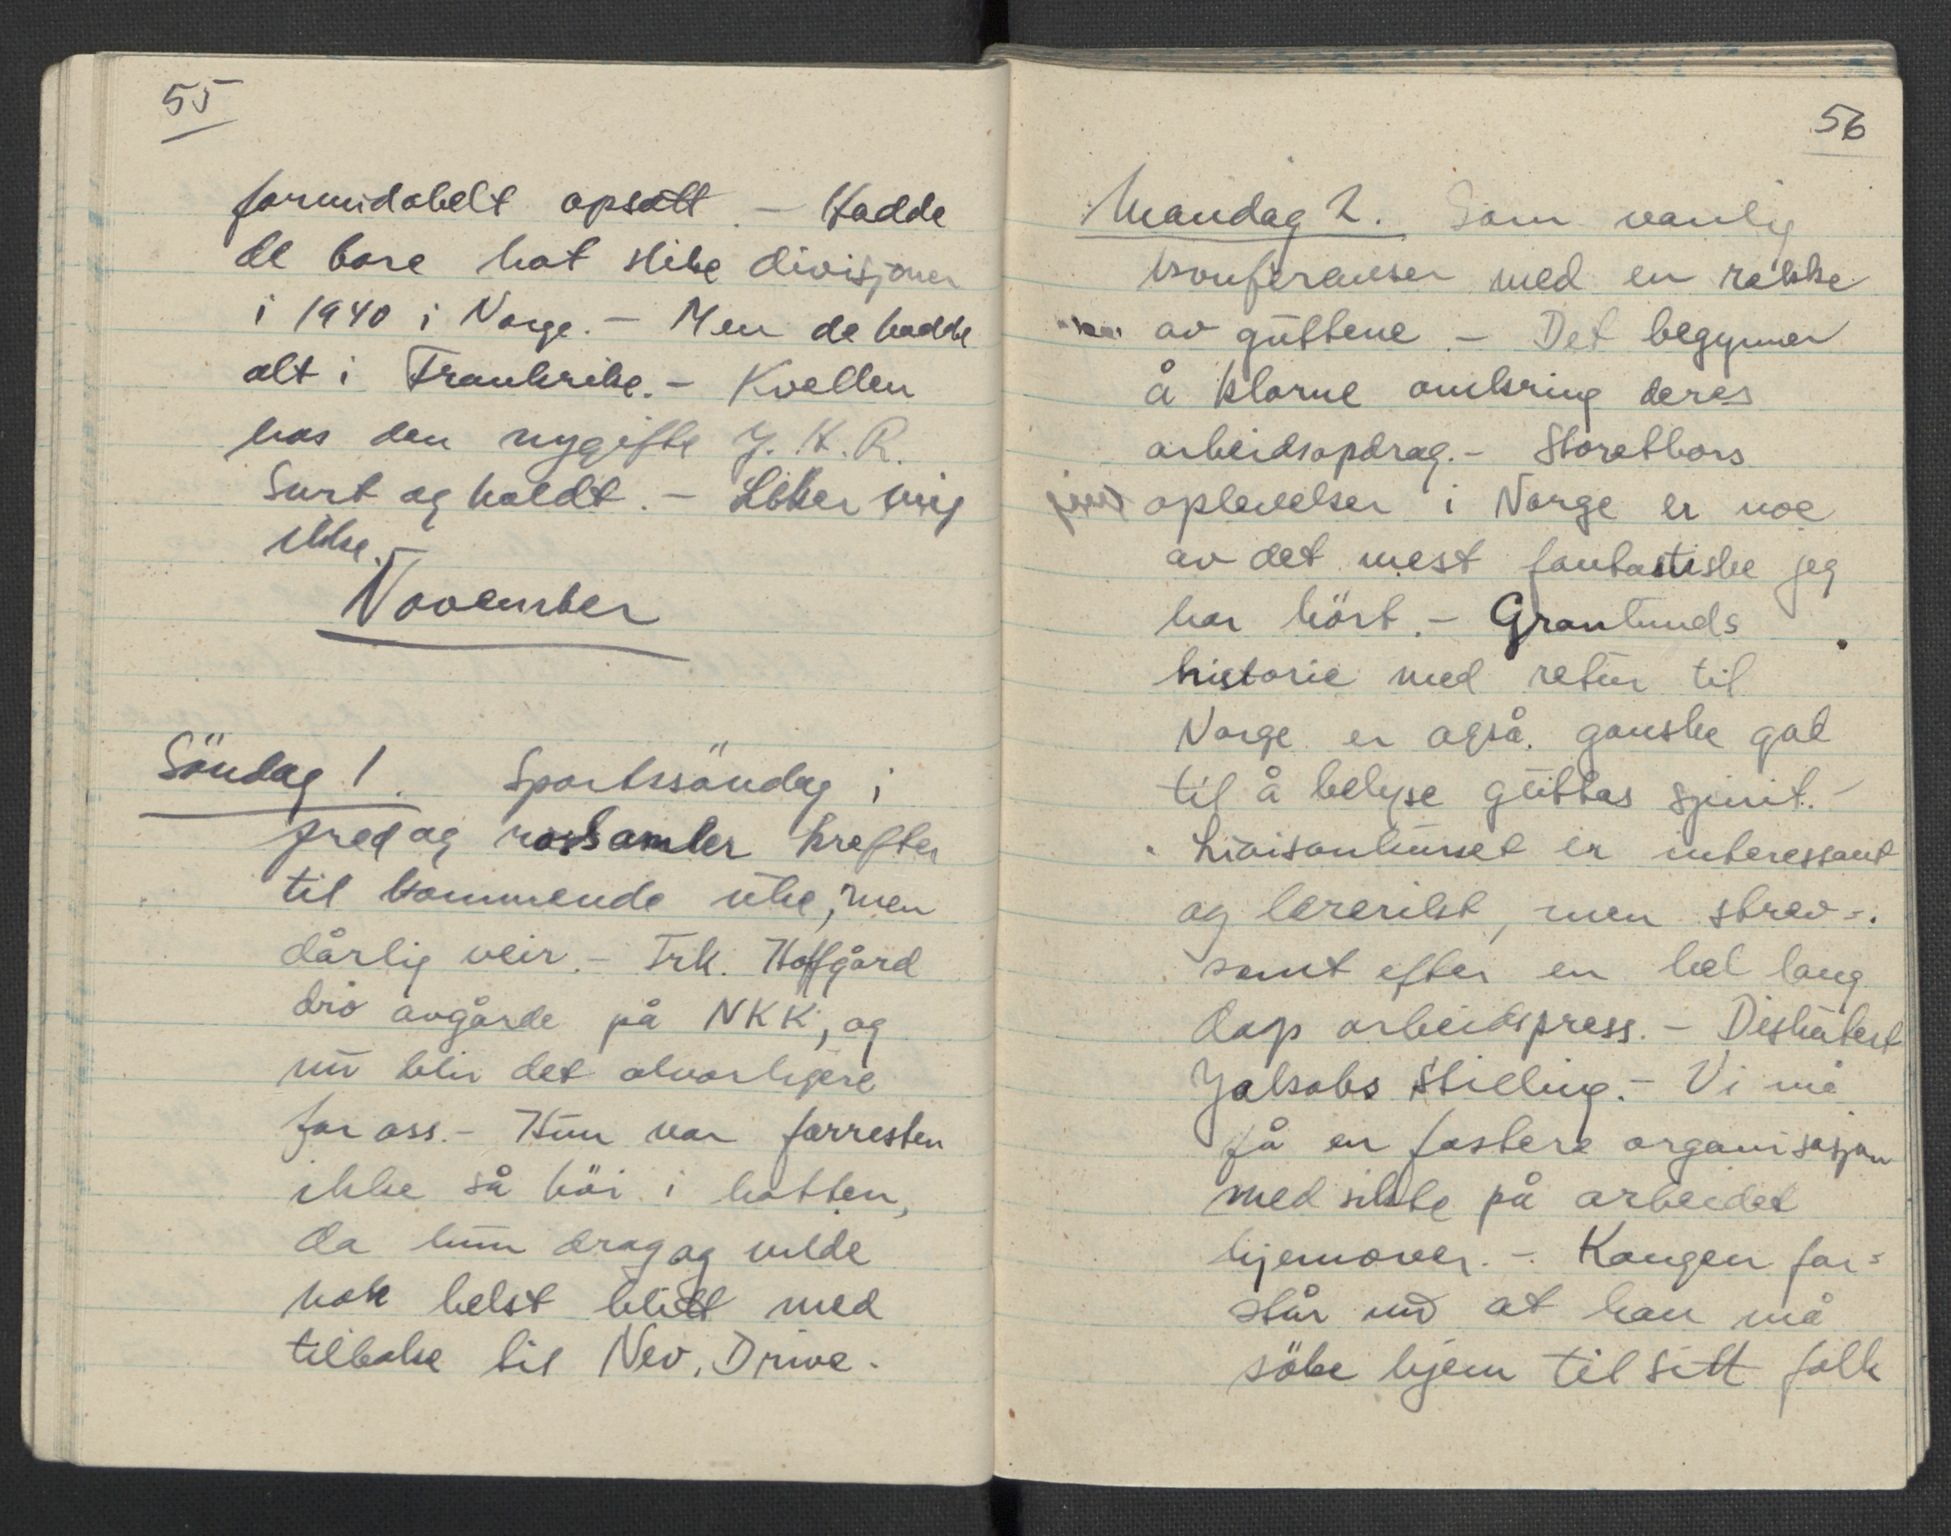 55
formidabelt opsatt. - Hadde
de bare hat slike divisjoner
i 1940 i Norge. - Men de hadde
alt i Frankrike. - Kvellen
hos den nygifte J. H. R.
Surt og koldt. - Liker mig
ikke. -
November
Söndag 1. Sportssöndag i
fred og ro samler krefter
til kommende uke, men
dårlig veir. - Frk. Hoffgård
dro avgårde på NKK, og
nu blir det alvorligere
for oss. - Hun var forresten
ikke så höi i hatten,
da hun drog og vilde
nok helst blitt med
tilbake til Nev. Drive.
56
Mandag 2. Som vanlig
konferanser med en rekke
av guttene. - Det begynner
å klarne omkring deres
arbeidsopdrag. - Storethors
oplevelser i Norge er noe
av det mest fantastiske jeg
har hört. - Granlunds
historie med retur til
Norge er også ganske god
til å belyse guttas spirit. -
Liaisonkurset er interessant
og lærerikt, men strev-
somt efter en hel lang
dags arbeidspress. - Diskutert
Jakobs stilling. - Vi må
få en fastere organisasjon
med sikte på arbeidet
hjemover. - Kongen for-
står nu at han må
söke hjem til sitt folk